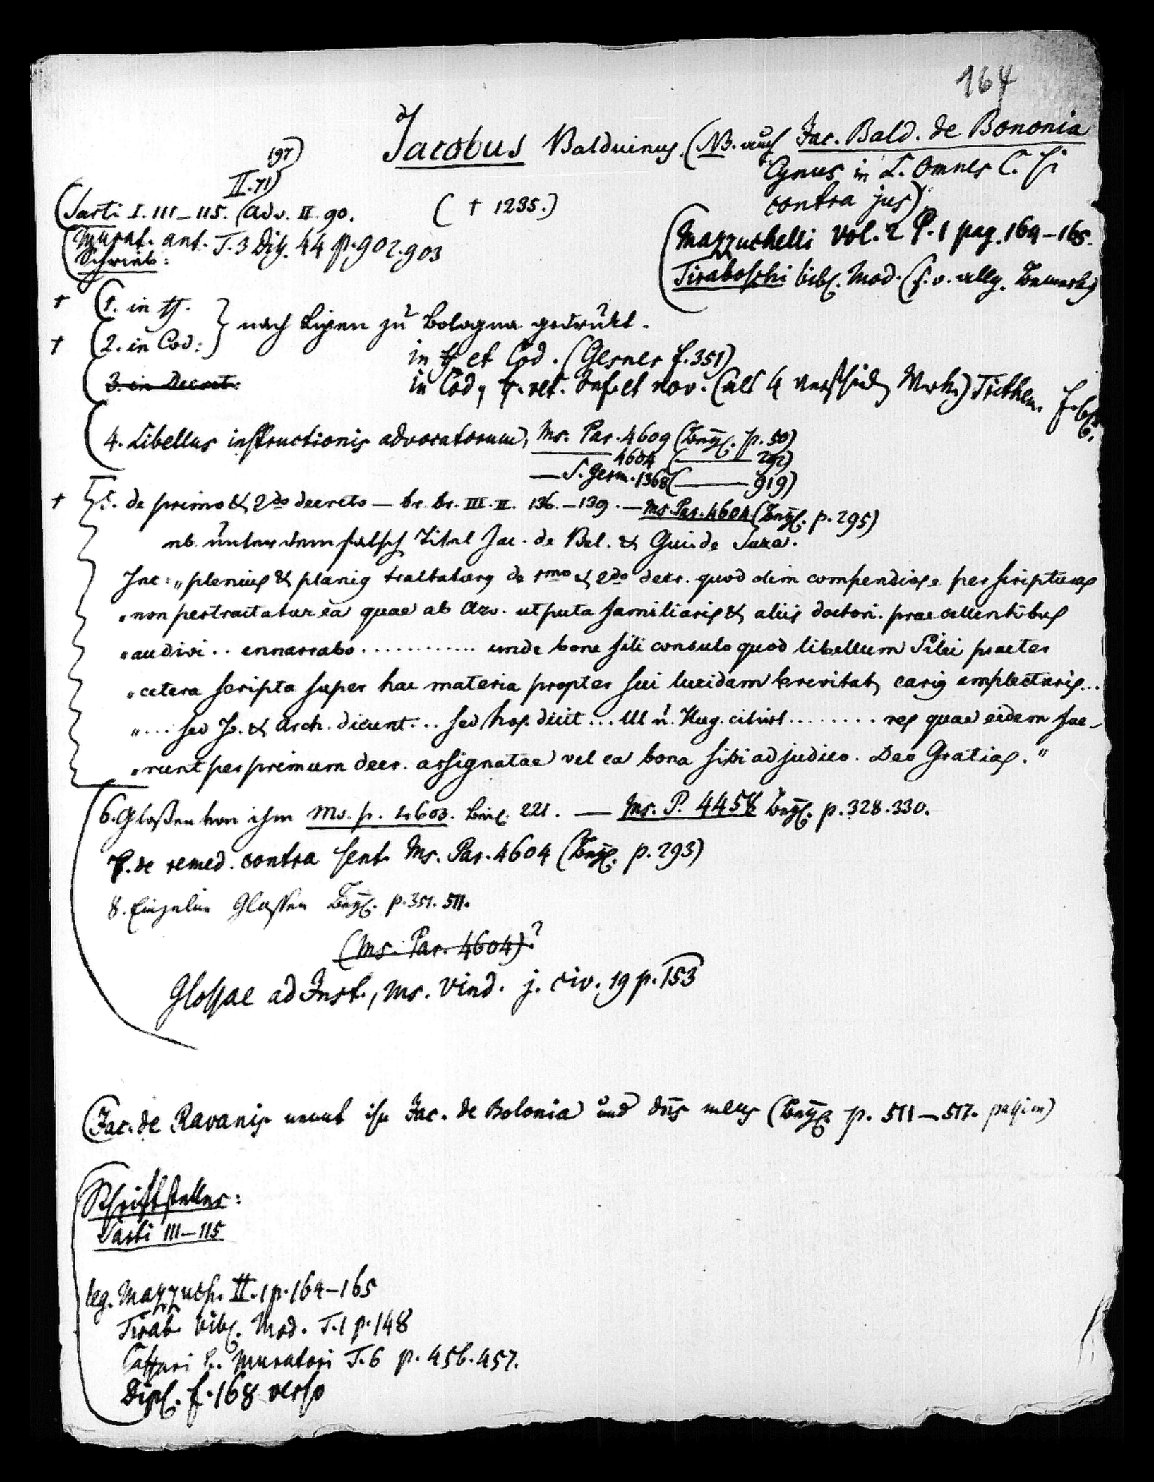 164
Jacobus Balduinus. (NB. auch Jac. Bald. de Bononia
Cynus in L. Omnes C. Si
contra jus)
197)
II. 71)
(Sarti I. 111–115. (Adv. II. 90.
( † 1235.)
(Murat. ant. T. 3 Diss. 44 p. 902. 903
Schrieb:
(Mazzuchelli vol. 2 P. 1 pag. 164–165.
Tiraboschi bibl. Mod. (s. v. allg.
† (1. in ff.
† (2. in Cod: } nach Lipen zu Bologna gedrukt.
in ff et Cod. (Gesner f. 351)
(3. in Decret.
in Cod, ff. vet. Inf. et nov. (als 4 Werke) Trithem.
4. Libellus instructionis advocatorum, Ms. Par. 4609 (p. 50)
4604 (—— 292)
— S. Germ. 1368 (—— 919)
† 5. de primo & 2do decreto — br. br. III. II. 136.–139. — Ms. Par. 4604 (p. 295)
nb. unter dem falsch Titel Jac. de Bel. & Gui. de Suza.
Inc: „plenius & planius tractaturus de 1mo & 2do decr. quod olim compendiose perscripturus
„non pertractatur ea quae ab Azo. utputa familiaris & aliis doctori. praecellentibus
„audivi .. ennarrabo ............ unde bone fili consulo quod libellum Pilei praeter
„cetera scripta super hac materia propter sui lucidam brevitat, carius amplectaris...
„... sed Jo. & Arch. dicunt... sed hos. dicit ... Ulr u. Hug. citirt ........ res quae eidem fue-
„runt per primum decr. assignatae vel ea bona sibi adjudico. Deo Gratias."
6. Glossen von ihm Ms. p. 4603. 221. — Ms. P. 4458 p. 328. 330.
7. de remed. contra sent. Ms. Par. 4604 (p. 293)
8. Einzelne Glossen p. 351. 511.
(Ms. Par. 4604)?
Glossae ad Inst., Ms. Vind. j. civ. 19 p. 153
(Jac. de Ravanis nennt ihn Jac. de Bolonia und dns meus (p. 511–517. passim)
Schriftsteller:
Sarti 111–115
leg. Mazzuch. II. 1 p. 164–165
Tirab. bibl. Mod. T. 1 p. 148
Caffari b. Muratori T. 6 p. 456. 457.
Dipl. f. 168 verso